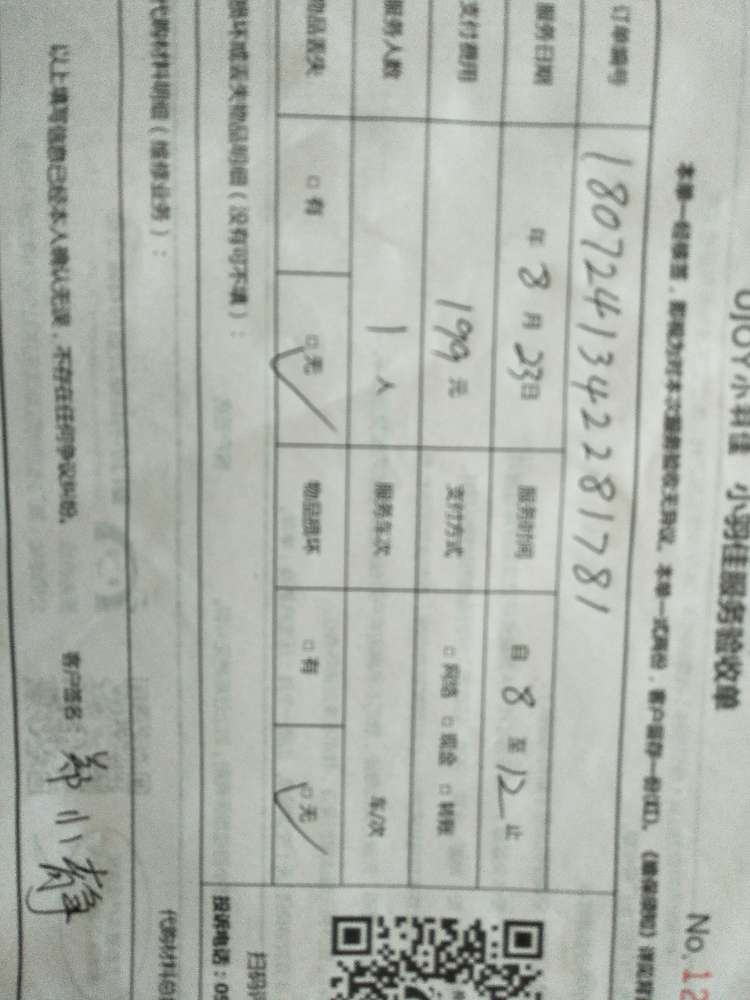 小羽佳服务验收单
No.12
本单一经签签，即视为对本次服务验收无异议。本单一式两份，客户留存一份(红)。
订单编号 1807241342281781
服务日期 年 8 月 23 日 服务时间 自 8 至 12 止
支付费用 199 元 支付方式 □ 网络 □ 现金 □ 转账
服务人数 1 人 服务车次 车/次
物品丢失 □ 有 □ 无 物品损坏 □ 有 □ 无
损坏或丢失物品明细（没有可不填）：
投诉电话：05
代购材料明细（维修业务）：
以上填写信息已经本人确认无误，不存在任何争议纠纷。 客户签名：郑小静